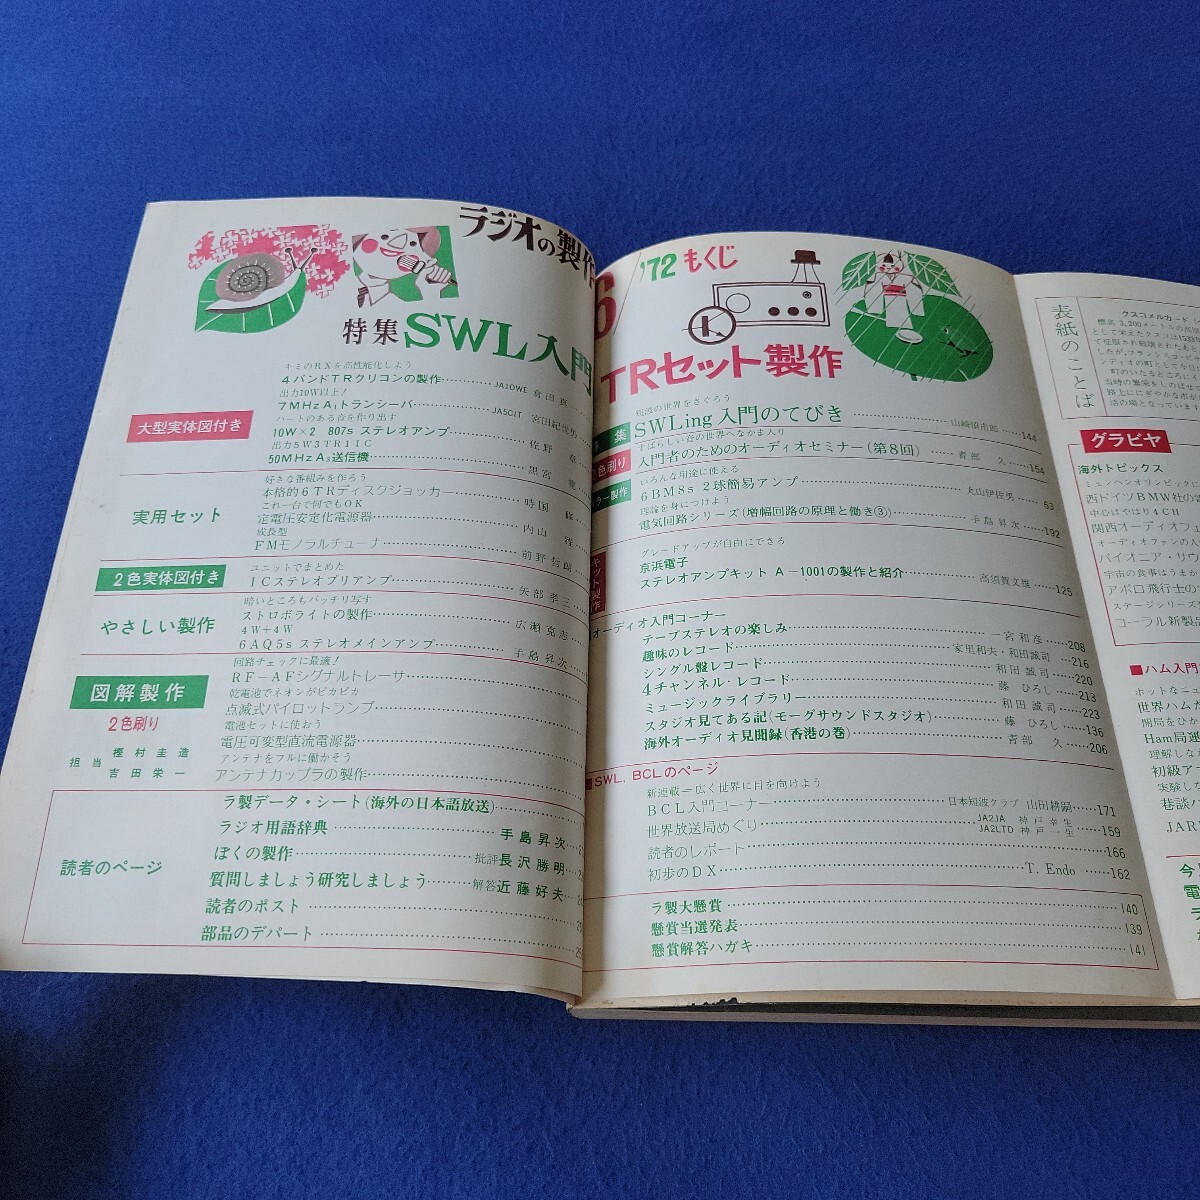 ラジオの製作
特集 SWL入門
大型実体図付き
キミのRXを高性能化しよう
4バンドTRクリコンの製作 JA1OWE 倉田真
出力10W以上!
7MHzA₁トランシーバ JA5CIT 宮田紀佳男
ハートのある音を作り出す
10W×2 807s ステレオアンプ 佐野 章
出力5W3TR1IC
50MHzA₃送信機 黒宮 寛
実用セット
好きな番組みを作ろう
本格的6TRディスクジョッカー 時国 修
これ一台で何でもOK
定電圧安定化電源器 内山 雅
成長型
FMモノラルチューナ 前野哲郎
2色実体図付き
ユニットでまとめた
ICステレオプリアンプ 矢部孝三
やさしい製作
暗いところもバッチリ写す
ストロボライトの製作 広瀬克志
4W+4W
6AQ5s ステレオメインアンプ 手島昇次
図解製作
2色刷り
担当 樫村圭造
吉田栄一
回路チェックに最適!
RF-AFシグナルトレーサ
乾電池でネオンがピカピカ
点滅式パイロットランプ
電池セットに使おう
電圧可変型直流電源器
アンテナをフルに働かそう
アンテナカップラの製作
読者のページ
ラ製データ・シート(海外の日本語放送)
ラジオ用語辞典 手島昇次
ぼくの製作 批評 長沢勝明
質問しましょう研究しましょう 解答 近藤好夫
読者のポスト
部品のデパート
6/'72 もくじ
TRセット製作
集
短波の世界をさぐろう
SWLing 入門のてびき 山崎慎市郎 144
色刷り
すばらしい音の世界へなかま入り
入門者のためのオーディオセミナー(第8回) 青郡 久 154
ラー製作
いろんな用途に使える
6BM8s 2球簡易アンプ 丸山伊佐男 63
理論を身につけよう
電気回路シリーズ(増幅回路の原理と働き③) 手島昇次 192
キット製作
グレードアップが自由にできる
京浜電子
ステレオアンプキット A-1001の製作と紹介 高須賀文雄 125
オーディオ入門コーナー
テープステレオの楽しみ 一宮和彦 208
趣味のレコード 家里和夫・和田誠司 216
シングル盤レコード 和田誠司 220
4チャンネル・レコード 藤 ひろし 213
ミュージックライブラリー 和田誠司 223
スタジオ見てある記(モーグサウンドスタジオ) 藤 ひろし 136
海外オーディオ見聞録(香港の巻) 青郡 久 206
■SWL, BCLのページ
新連載=広く世界に目を向けよう
BCL入門コーナー 日本短波クラブ 山田耕嗣 171
世界放送局めぐり JA2JA 神戸幸生
JA2LTD 神戸一生 159
読者のレポート 166
初歩のDX T. Endo 162
ラ製大懸賞 140
懸賞当選発表 139
懸賞解答ハガキ 141
表紙のことば
クスコメルカード
標高 3,200メートルの
グラビヤ
海外トピックス
ミュンヘンオリンピックに
西ドイツBMW社の
中心はやはり4CH
関西オーディオフ
オーディオファンの人
パイオニア・サウ
宇宙の食事はうまか
アポロ飛行士の
ステージシリーズ
コーラル新製品
■ハム入門
ホットなニュ
世界ハムが
開局をひか
Ham局運
理解しなが
初級アー
実験しな
巷談ハ
JARL